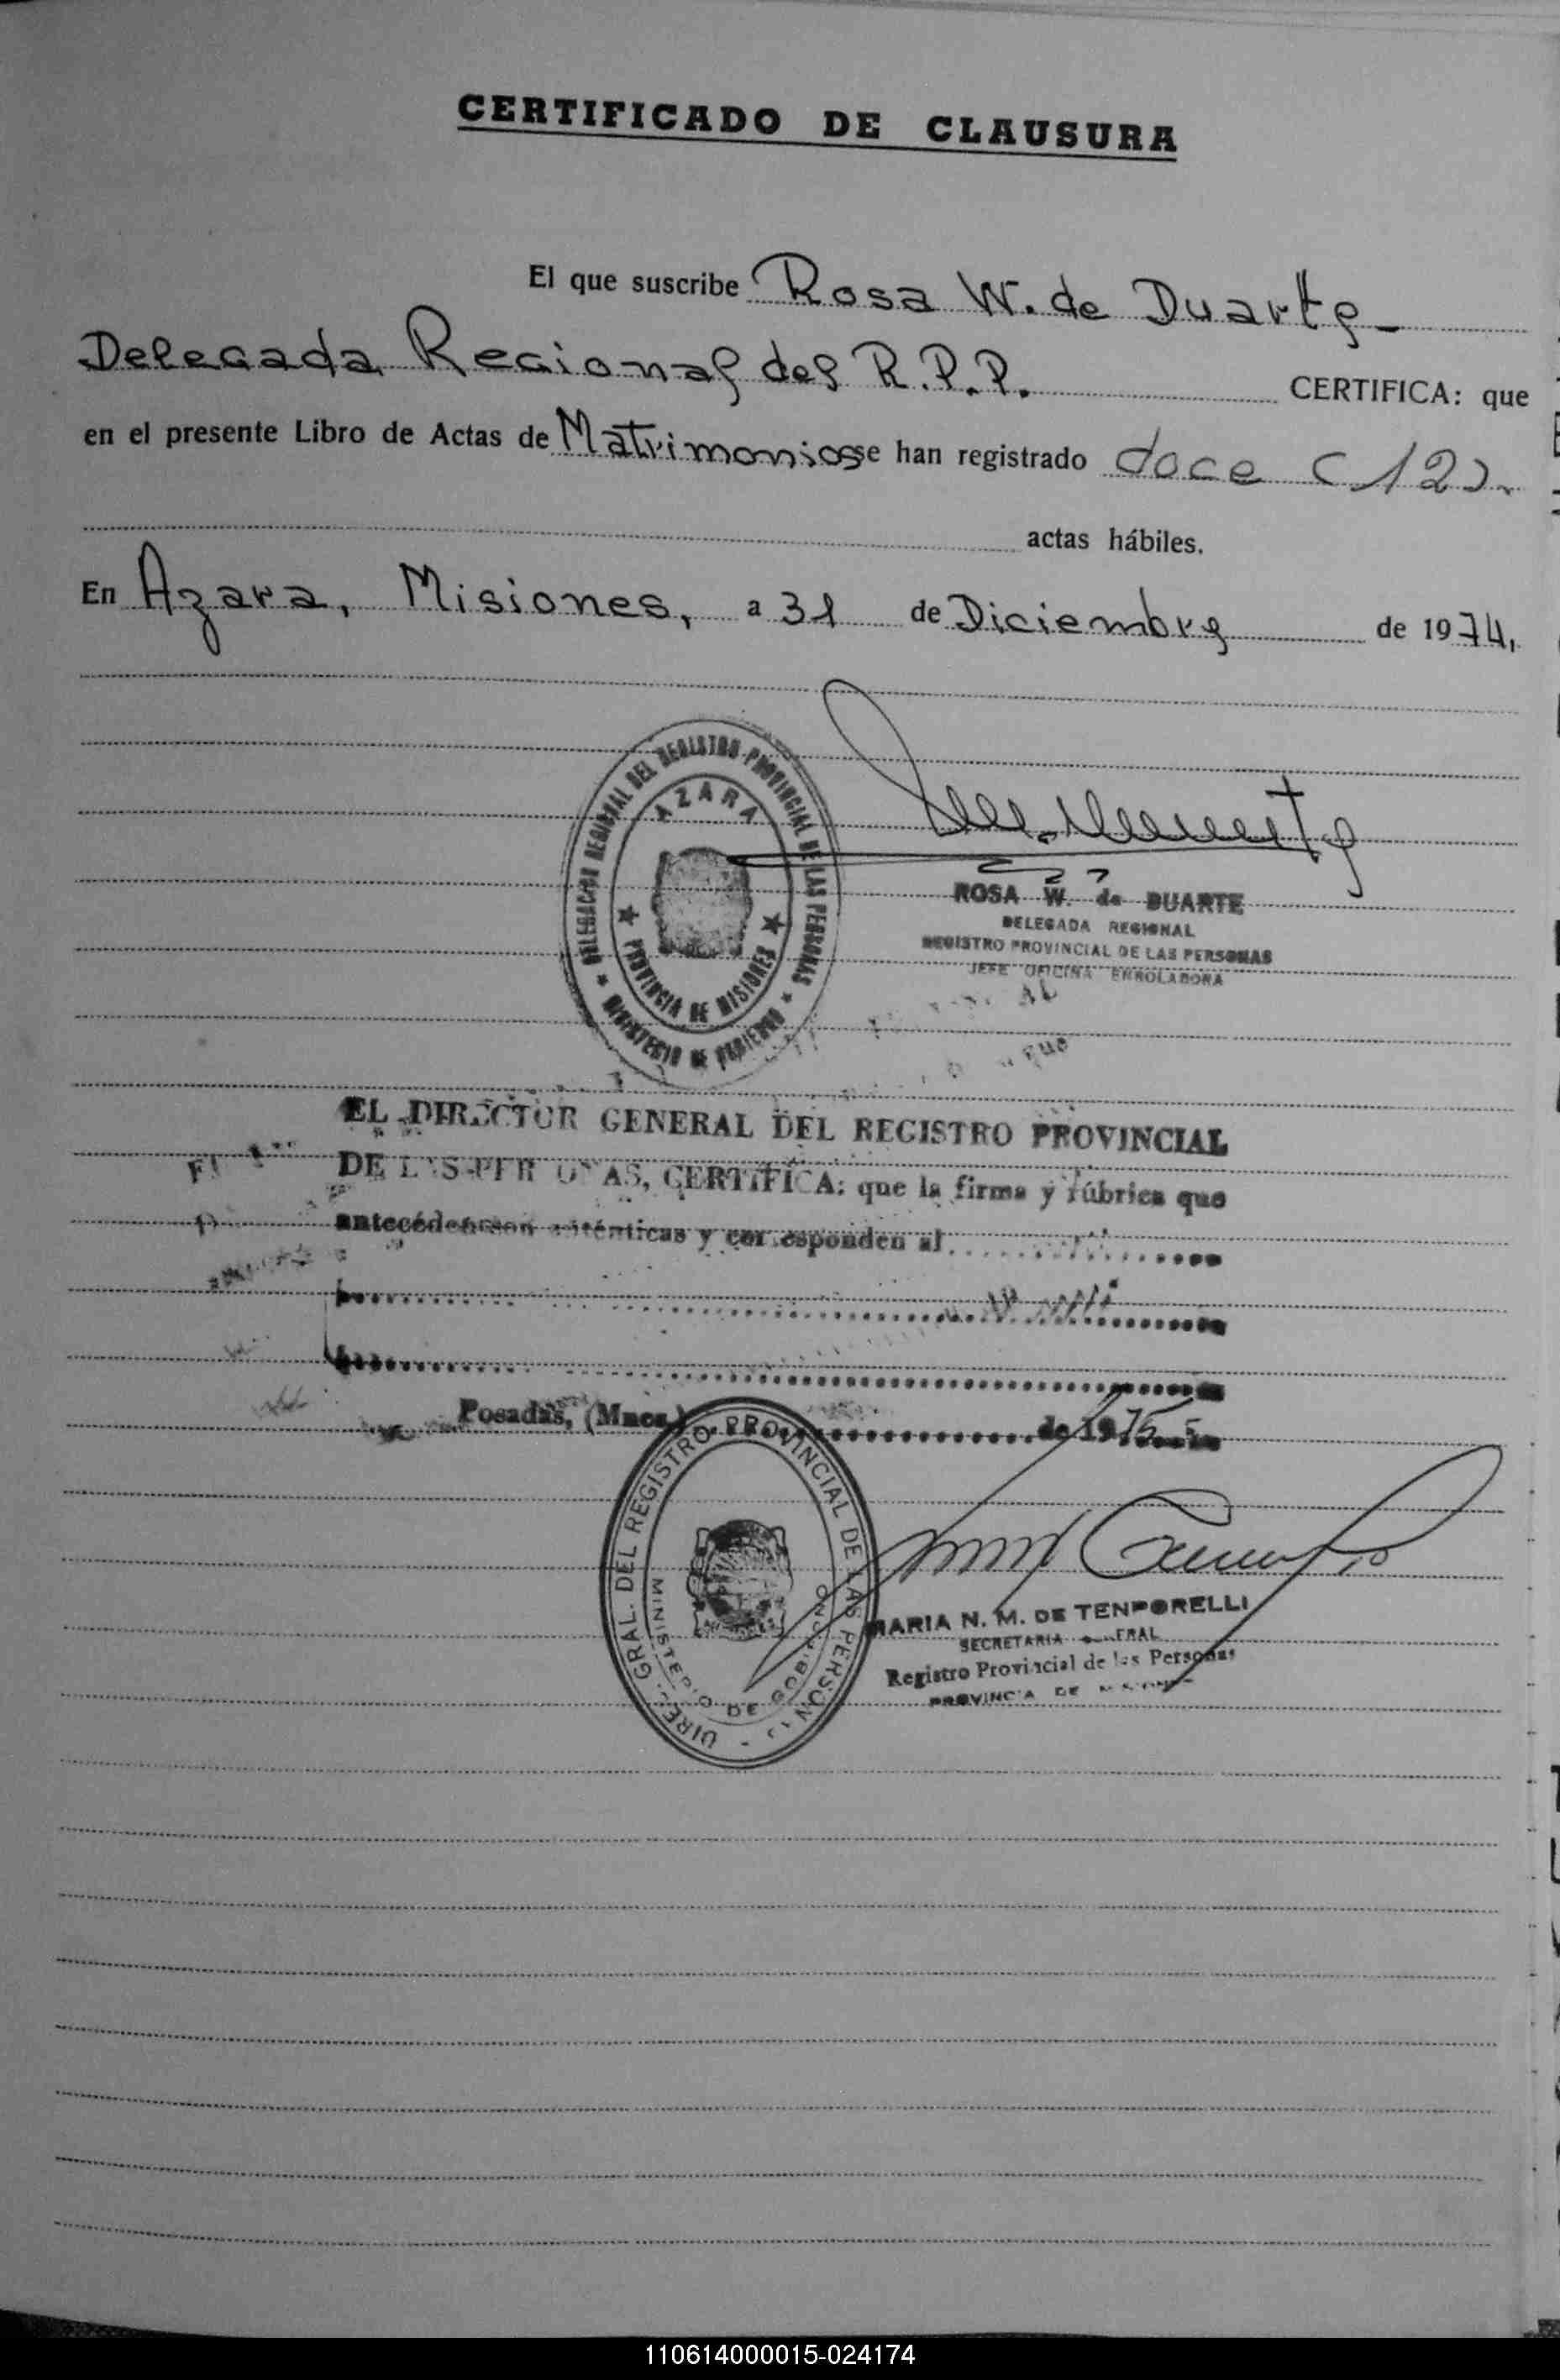 CERTIFICADO DE CLAUSURA
El que suscribe Rosa W. de Duarte
Delegada Regional del R.P.P. CERTIFICA: que
en el presente Libro de Actas de Matrimonios se han registrado doce (12).
actas hábiles.
En Azara, Misiones, a 31 de Diciembre de 1974,
DELEGACION REGIONAL DEL REGISTRO PROVINCIAL DE LAS PERSONAS
AZARA
PROVINCIA DE MISIONES
MINISTERIO DE GOBIERNO
ROSA W. de DUARTE
DELEGADA REGIONAL
REGISTRO PROVINCIAL DE LAS PERSONAS
JEFE OFICINA ENROLADORA
EL DIRECTOR GENERAL DEL REGISTRO PROVINCIAL
DE LAS PERSONAS, CERTIFICA: que la firma y rúbrica que
anteceden son auténticas y corresponden al
Posadas, (Mnes.) de 1975
DIREC. GRAL. DEL REGISTRO PROVINCIAL DE LAS PERSONAS
MINISTERIO DE GOBIERNO
MARIA N. M. DE TENPORELLI
SECRETARIA GENERAL
Registro Provincial de las Personas
PROVINCIA DE MISIONES
110614000015-024174